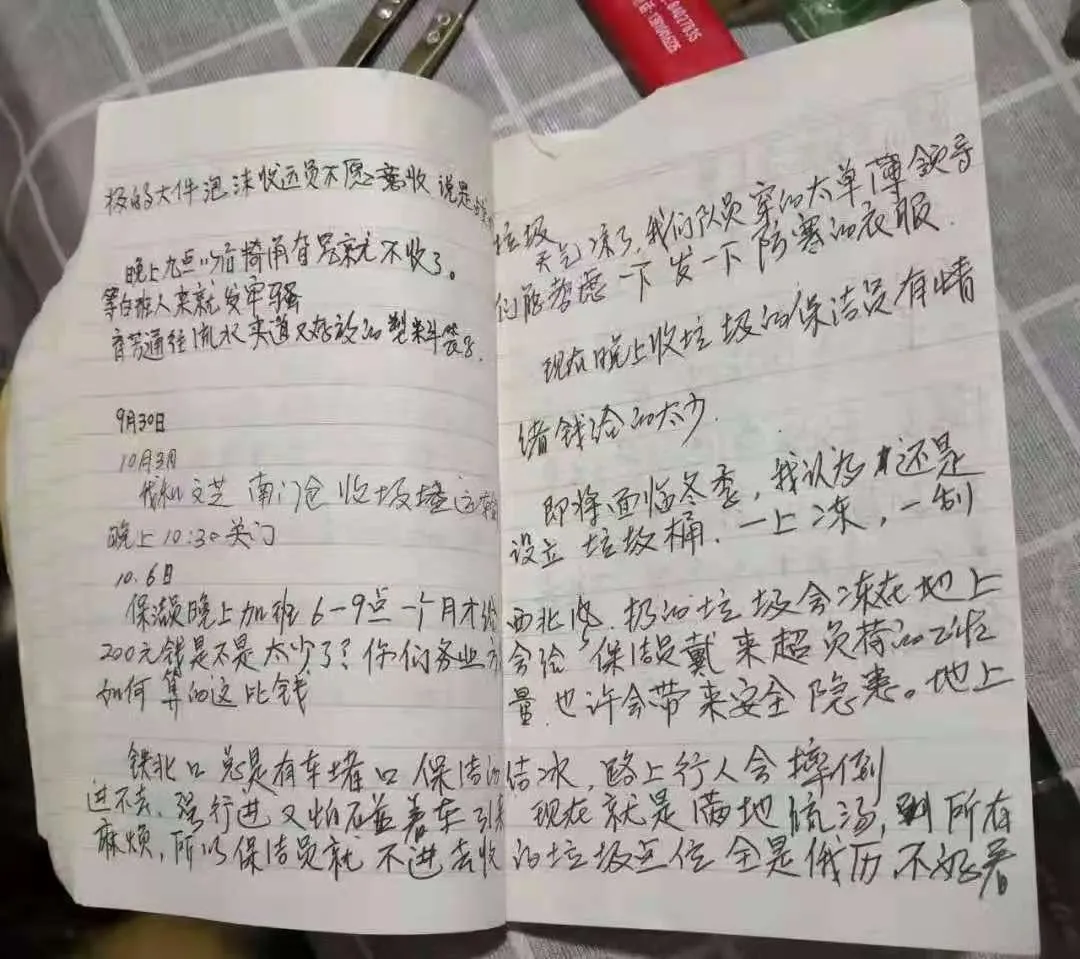 极的大件泡沫收还员不愿意收 说是
晚上九点以后 犄角旮旯就不收了。
等白班人来就发牢骚
流水 夹道又存放的塑料
9月30日
10月3月
我和文芝 南门仓 收圾
晚上10:30关门
10.6日
保洁员晚上加班6-9点一个月才给
200元钱是不是太少了? 你们务业
如何算的这比钱
铁北口总是有车堵口 保洁的
进不去,强行进又怕 着车引来
麻烦,所以保洁员就不进去收
垃圾
天气凉了,我们队员穿的太单薄领导
们能考虑一下发一下防寒的衣服.
现在晚上收垃圾的保洁员有情
绪钱给的太少.
即将面临冬季,我认为还是
设立垃圾桶.一上冻,一刮
西北风,扔的垃圾会冻在地上
会给保洁员戴来超负荷的工作
量.也许会带来安全隐患。地上
结冰,路上行人会摔倒
现在就是满地流汤,到所在
的垃圾点位全是 不好看
04027835